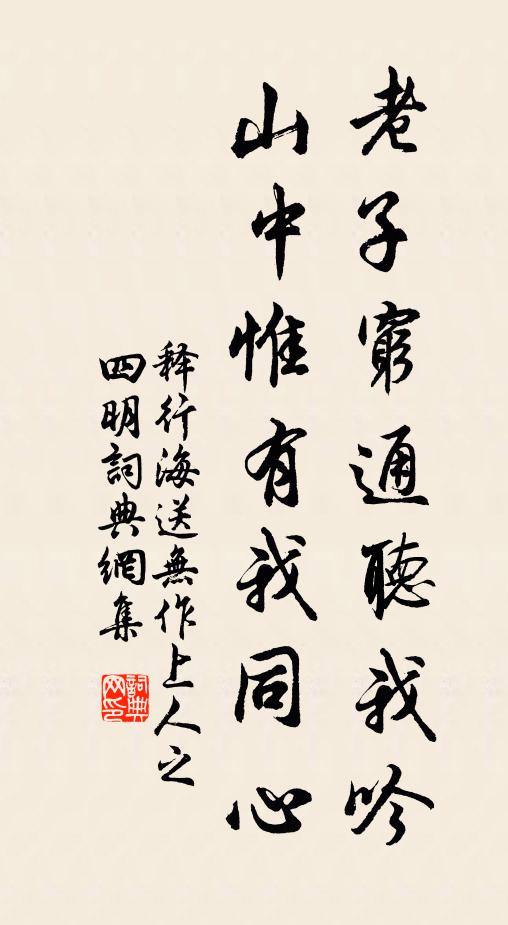 老子窮通聽我吟
山中惟有我同心
释行海送無作上人之
四明詞典網集
詞典
网印